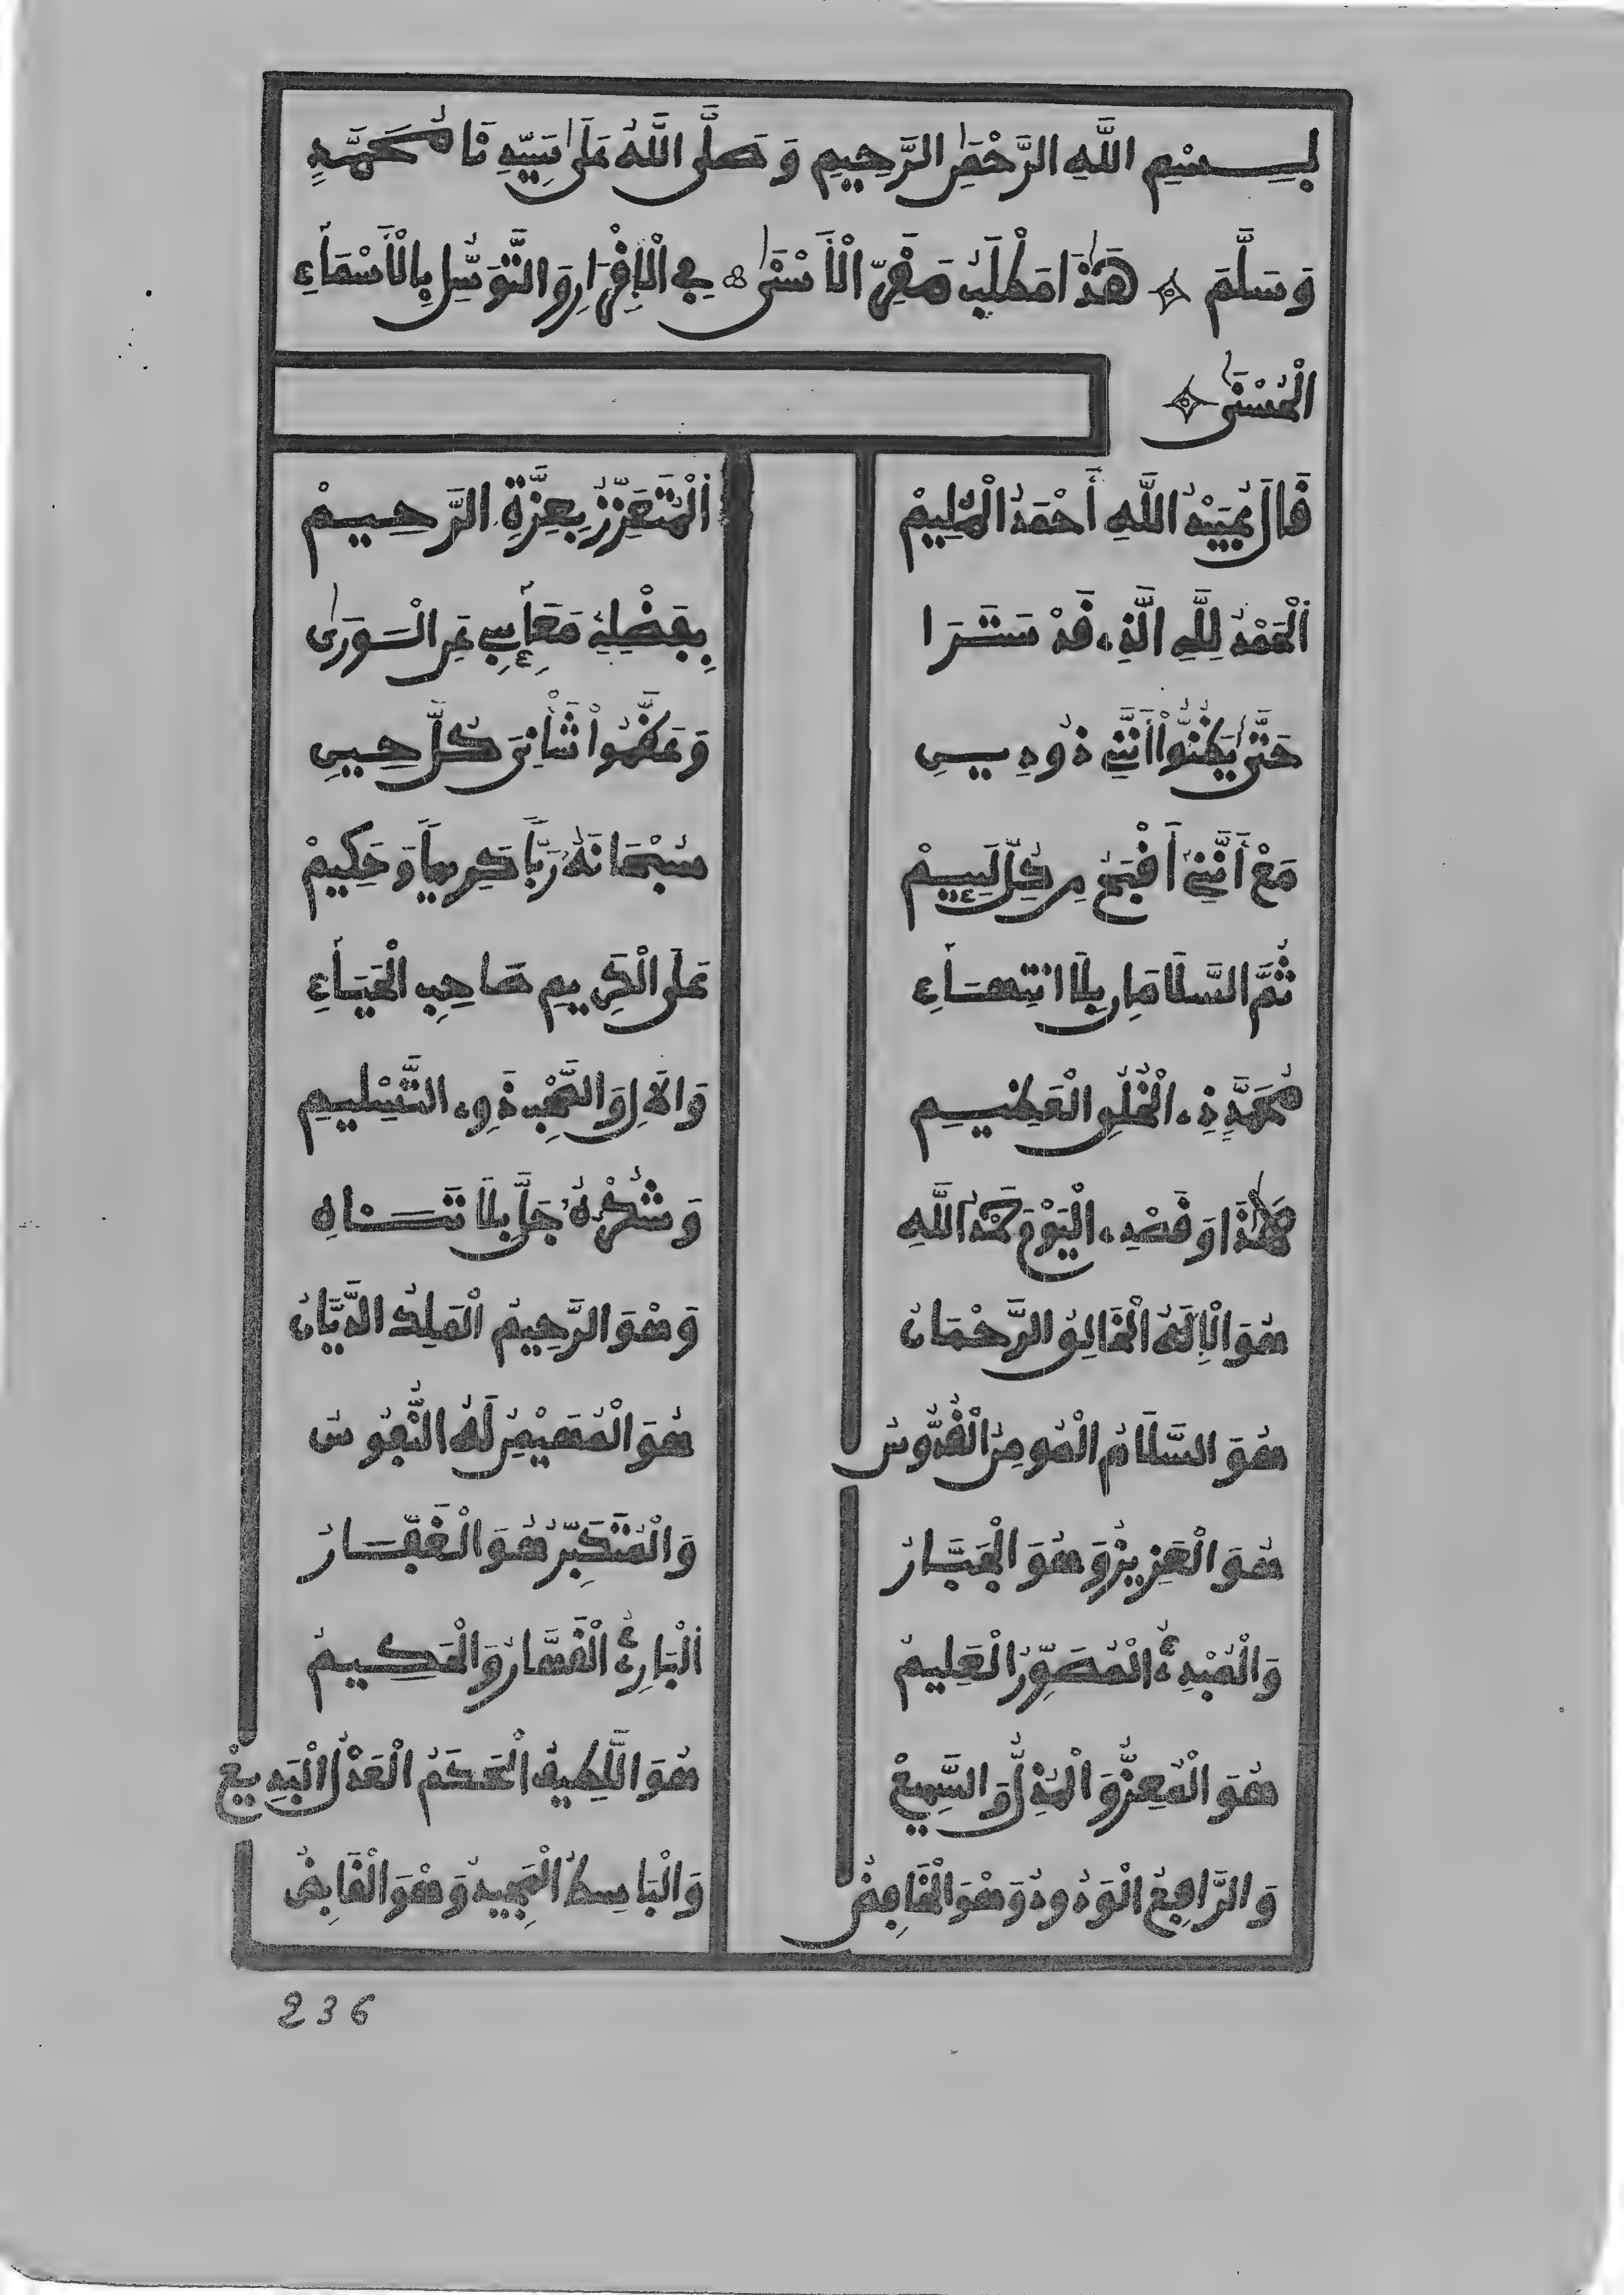 بِسْمِ اللَّهِ الرَّحْمَٰنِ الرَّحِيمِ وَصَلَّى اللَّهُ عَلَىٰ سَيِّدِنَا مُحَمَّدٍ
وَسَلَّمَ هَٰذَا مَطْلَبُ مَغْنَى الْأَسْنَىٰ فِي الْإِقْرَارِ وَالتَّوَسُّلِ بِالْأَسْمَاءِ
الْحُسْنَىٰ
قَالَ عُبَيْدُ اللَّهِ أَحْمَدُ الْمُلِيمْ اَلْمُتَعَزِّزُ بِعِزَّةِ الرَّحِيمْ
اَلْحَمْدُ لِلَّهِ الَّذِي قَدْ سَتَرَا بِفَضْلِهِ مَعَائِبِي عَنِ الْوَرَىٰ
حَتَّىٰ يَظُنُّواْ أَنَّنِي ذُو دِينِ وَعَظَّمُواْ شَأْنِيَ كُلَّ حِينِ
مَعْ أَنَّنِي أَقْبَحُ مِن كُلِّ لَئِيمْ سُبْحَانَهُ رَبًّا كَرِيمًا وَحَكِيمْ
ثُمَّ السَّلَامَانِ بِلَا انْتِهَاءِ عَلَى الْكَرِيمِ صَاحِبِ الْحَيَاءِ
مُحَمَّدٍ ذِي الْخُلُقِ الْعَظِيمِ وَالْآلِ وَالصَّحْبِ ذَوِي التَّسْلِيمِ
هَٰذَا وَقَصْدِي الْيَوْمَ حَمْدُ اللَّهِ وَشُكْرُهُ جَلَّ بِلَا تَنَاهِ
هُوَ الْإِلَهُ الْخَالِقُ الرَّحْمَانُ وَهْوَ الرَّحِيمُ الْمَلِكُ الدَّيَّانُ
هُوَ السَّلَامُ الْمُومِنُ الْقُدُّوسُ هُوَ الْمُهَيْمِنُ لَهُ النُّفُوسُ
هُوَ الْعَزِيزُ وَهُوَ الْجَبَّارُ وَالْمُتَكَبِّرُ هُوَ الْغَفَّارُ
وَالْمُبْدِئُ الْمُصَوِّرُ الْعَلِيمُ اَلْبَارِئُ الْقَهَّارُ وَالْحَكِيمُ
هُوَ الْمُعِزُّ وَالْمُذِلُّ وَالسَّمِيعْ هُوَ اللَّطِيفُ الْحَكَمُ الْعَدْلُ الْبَدِيعْ
وَالرَّافِعُ الْوَدُودُ وَهْوَ الْخَافِضُ وَالْبَاسِطُ الْمَجِيدُ وَهْوَ الْقَابِضُ
236